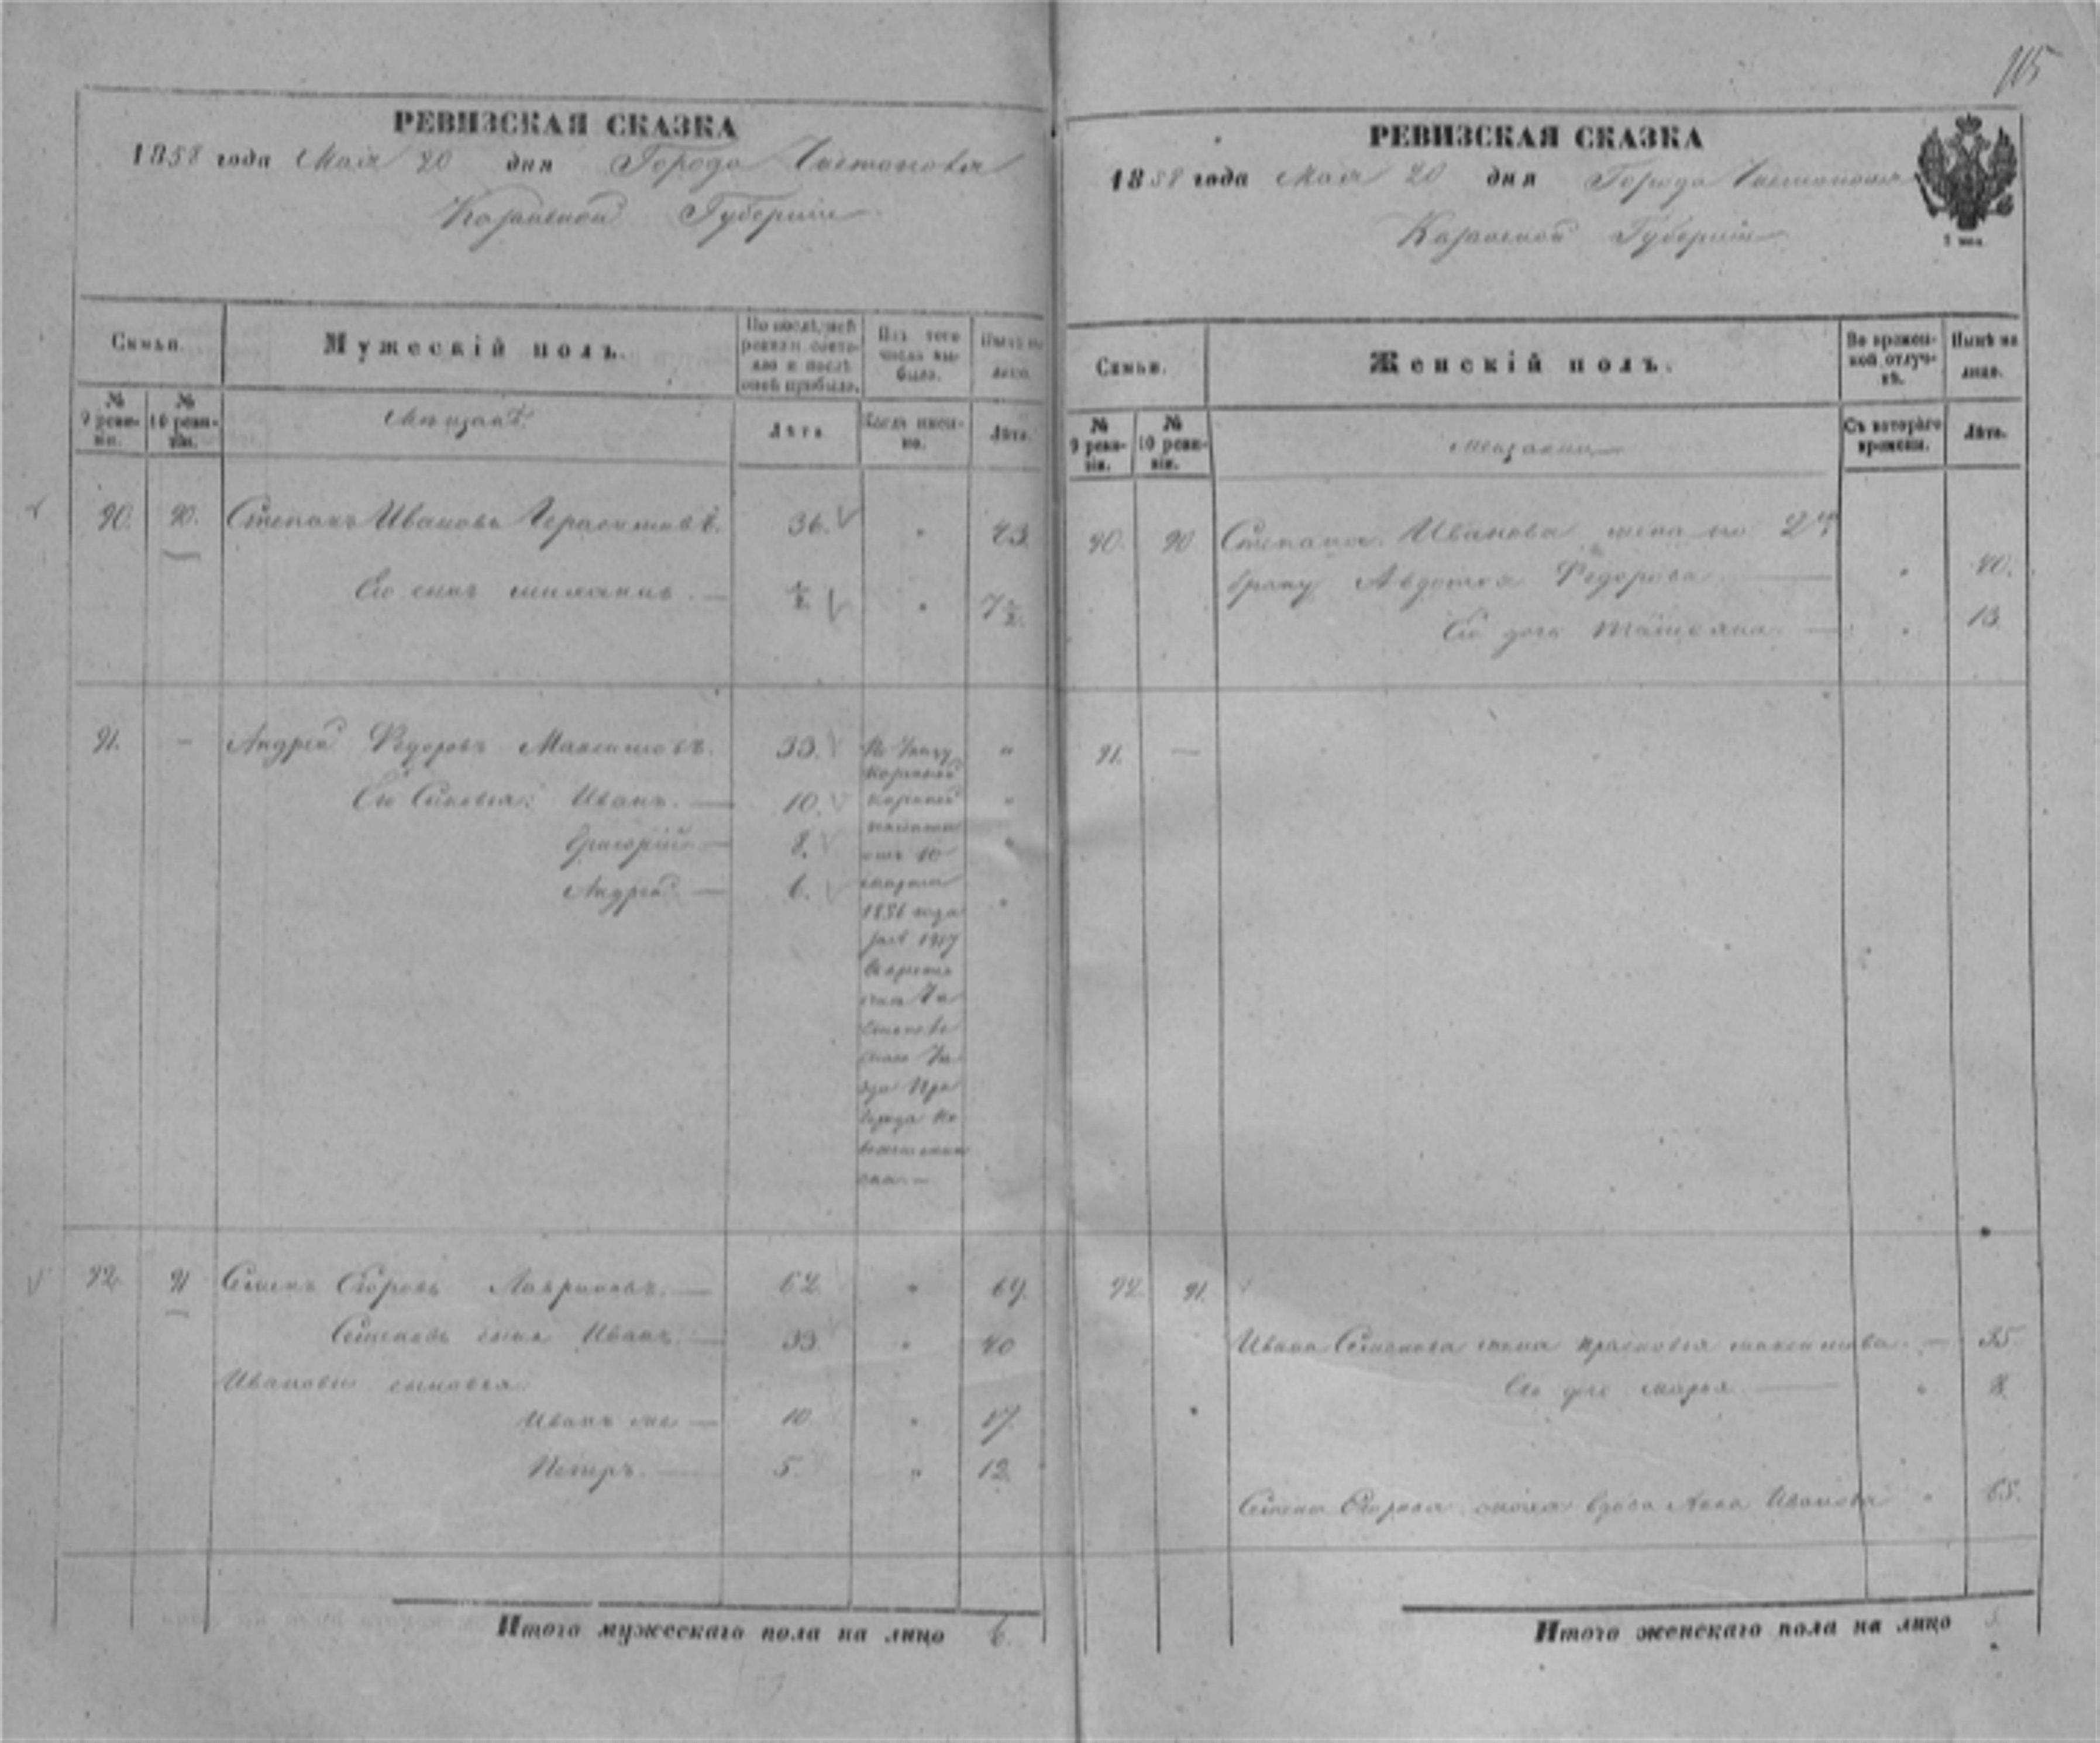 115
РЕВИЗСКАЯ СКАЗКА
1858 года Мая 20 дня Города Чистополя
Казанской Губернии
Семьи.
Мужескій полъ.
По послѣдней ревизіи состояло и послѣ оной прибыло.
Изъ того числа выбыло.
Нынѣ на лицо.
№ 9 ревизіи.
№ 10 ревизіи.
Мѣщанѣ.
Лѣта
Когда именно.
Лѣта.
90. 90. Степанъ Ивановъ Герасимовъ. 36. " 43
Его сынъ ½ " 7½
91. - Андрей Ѳедоровъ Максимовъ. 33. "
Его Сыновья: Иванъ. — 10. "
Григорій — 8. "
Андрей — 6. "
По Указу
Казанской
Казенной
Палаты
отъ 10
1856 года
за №
92. 91 Семенъ Егоровъ — 62 " 69.
Семеновъ сынъ Иванъ — 33 " 40
Ивановы сыновья:
Иванъ же — 10 " 17.
Петръ. — 5. " 12.
Итого мужескаго пола на лицо 6.
РЕВИЗСКАЯ СКАЗКА
1858 года Мая 20 дня Города Чистополя
Казанской Губернии
Семьи.
Женскій полъ.
Во временной отлучкѣ.
Нынѣ на лицо.
№ 9 ревизіи.
№ 10 ревизіи.
Мещанки
Съ котораго времени.
Лѣта.
90. 90 Степана Иванова жена по 2му
браку Авдотья Ѳедорова — " 40.
Его дочь Татьяна — " 13
91. —
92 91.
Ивана Семенова жена Прасковья Максимова — 35.
Его дочь Марья — " 8
Семена Егорова вдова Анна Иванова " 65.
Итого женскаго пола на лицо